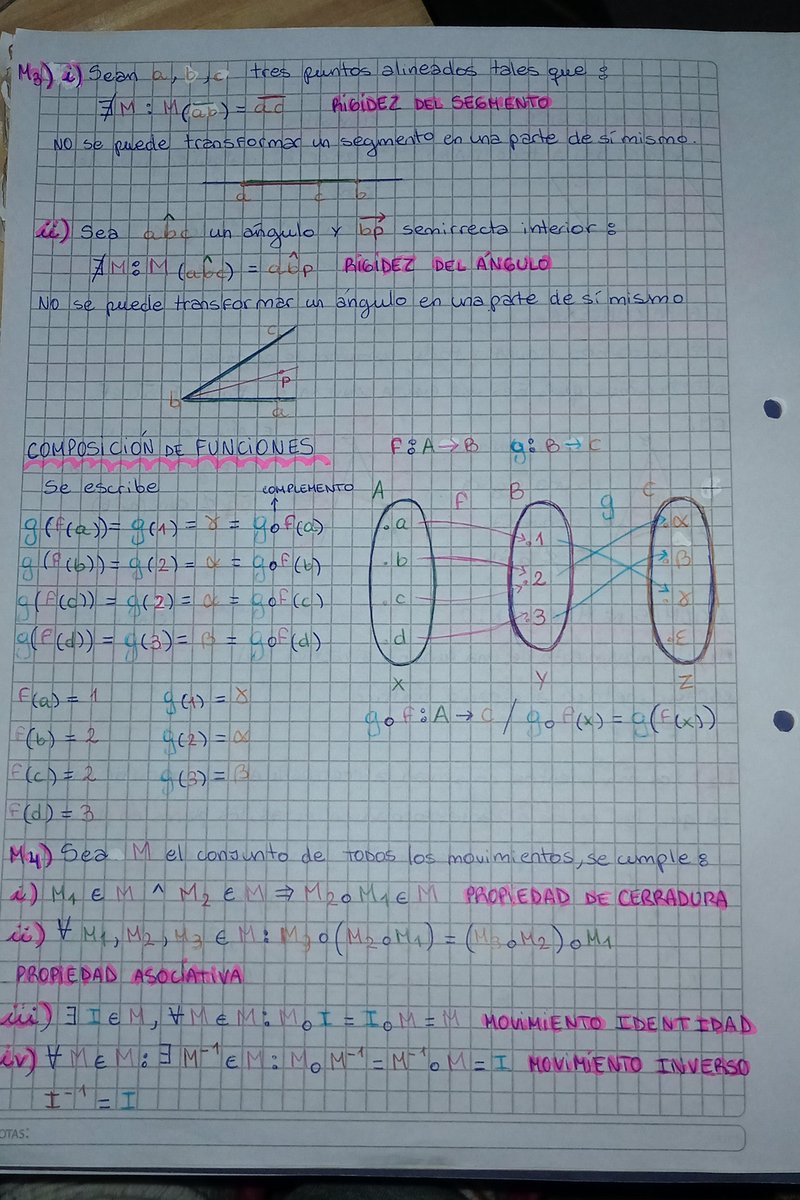 M3) i) Sean a, b, c tres puntos alineados tales que :
∄M : M(a̅b̅) = a̅c̅ RIGIDEZ DEL SEGMENTO
NO se puede transformar un segmento en una parte de sí mismo.
a c b
ii) Sea ab̂c un ángulo y bp→ semirrecta interior :
∄M : M(ab̂c) = ab̂p RIGIDEZ DEL ÁNGULO
No se puede transformar un ángulo en una parte de sí mismo
c
p
b
a
COMPOSICIÓN DE FUNCIONES f : A → B g : B → C
Se escribe COMPLEMENTO A f B g C
g(f(a)) = g(1) = γ = gof(a) .a .1 .α
g(f(b)) = g(2) = α = gof(b) .b .2 .β
g(f(d)) = g(2) = α = gof(c) .c .3 .γ
g(f(d)) = g(3) = β = gof(d) .d .ε
X Y Z
f(a) = 1 g(1) = γ
gof : A → C / gof(x) = g(f(x))
f(b) = 2 g(2) = α
f(c) = 2 g(3) = β
f(d) = 3
M4) Sea M el conjunto de todos los movimientos, se cumple :
i) M1 ∈ M ∧ M2 ∈ M ⇒ M2oM1 ∈ M PROPIEDAD DE CERRADURA
ii) ∀ M1, M2, M3 ∈ M : M3o(M2oM1) = (M3oM2)oM1
PROPIEDAD ASOCIATIVA
iii) ∃ I ∈ M, ∀M ∈ M : MoI = IoM = M MOVIMIENTO IDENTIDAD
iv) ∀ M ∈ M : ∃ M⁻¹ ∈ M : MoM⁻¹ = M⁻¹oM = I MOVIMIENTO INVERSO
I⁻¹ = I
OTAS: